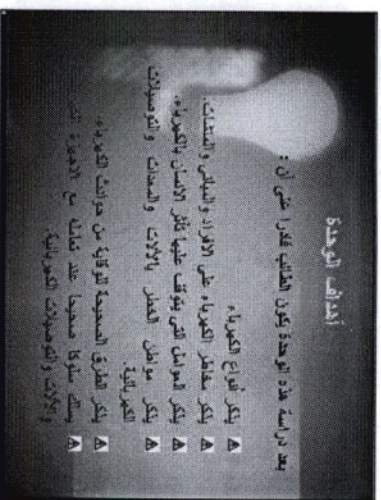 أهداف الوحدة
بعد دراسة هذه الوحدة يكون الطالب قادرا على أن :
يذكر أنواع الكهرباء
يذكر مخاطر الكهرباء على الافراد والمباني والمنشآت.
يذكر العوامل التي يتوقف عليها تأثر الانسان بالكهرباء.
يذكر مواطن الخطر بالآلات والمعدات والتوصيلات
الكهربائية.
يذكر الطرق الصحيحة للوقاية من حوادث الكهرباء.
يسلك سلوكا صحيحا عند تعامله مع الاجهزة
والآلات والتوصيلات الكهربائية.